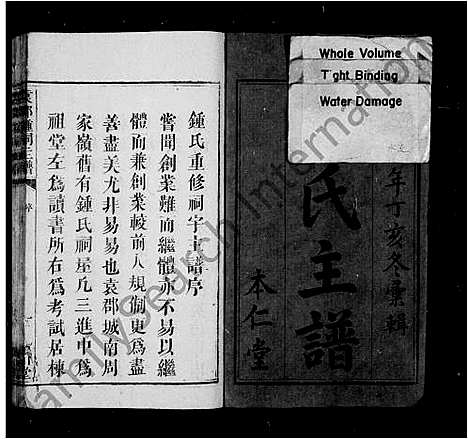 Whole Volume
Tight Binding
Water Damage
年丁亥冬彙輯
氏主譜
本仁堂
鍾氏重修祠宇主譜序
嘗聞創業難而繼體亦不易以繼
體而兼創業較前人規制更為盡
善盡美尤非易易也袁郡城南周
家嶺舊有鍾氏祠屋凢三進中為
祖堂左為讀書所右為考試居棟
FamilySearch International